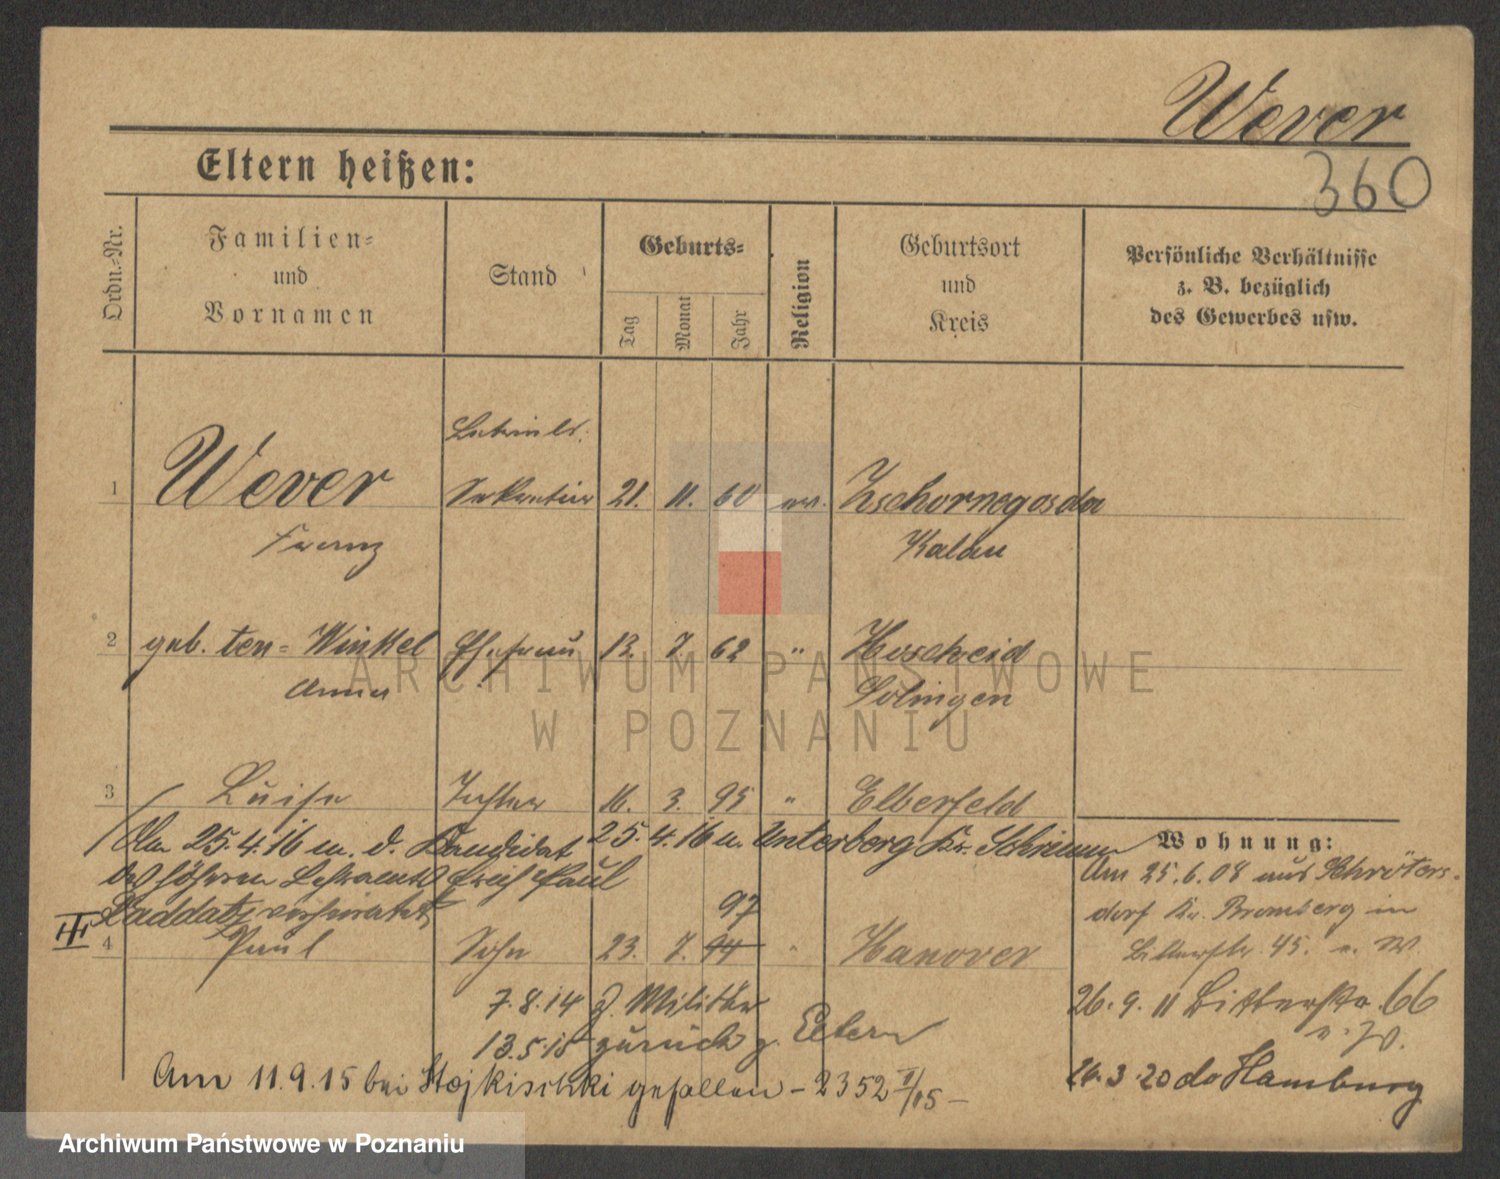 Wever
360
Eltern heißen:
Ordn.-Nr.
Familien-
und
Vornamen
Stand
Geburts-
Tag
Monat
Jahr
Religion
Geburtsort
und
Kreis
Persönliche Verhältnisse
z. B. bezüglich
des Gewerbes usw.
1 Wever Sekretär 21. 11. 60 ev. Zschornegosda
Franz Kalau
2 geb. ten-Winkel Ehefrau 13. 7. 62 " Hoscheid
Anna Solingen
3 Luise Tochter 16. 3. 95 " Elberfeld
Am 25.4.16 m. d. Kandidat 25.4.16 n. Unterberg Kr. Schrimm
des höheren Lehramts Paul
Laddatz verheiratet
97
III
4 Paul Sohn 23. 7. 94 " Hanover
7.8.14 z. Militär
13.5.15 zurück z. Eltern
Am 11.9.15 bei Stojkischki gefallen – 2352 II/15 –
Wohnung:
Am 25.6.08 aus Schröters-
dorf Kr. Bromberg in
45. n. W.
26.9.11 Bitterstr. 66
n. W.
24.3.20 do Hamburg
ARCHIWUM PAŃSTWOWE
W POZNANIU
Archiwum Państwowe w Poznaniu